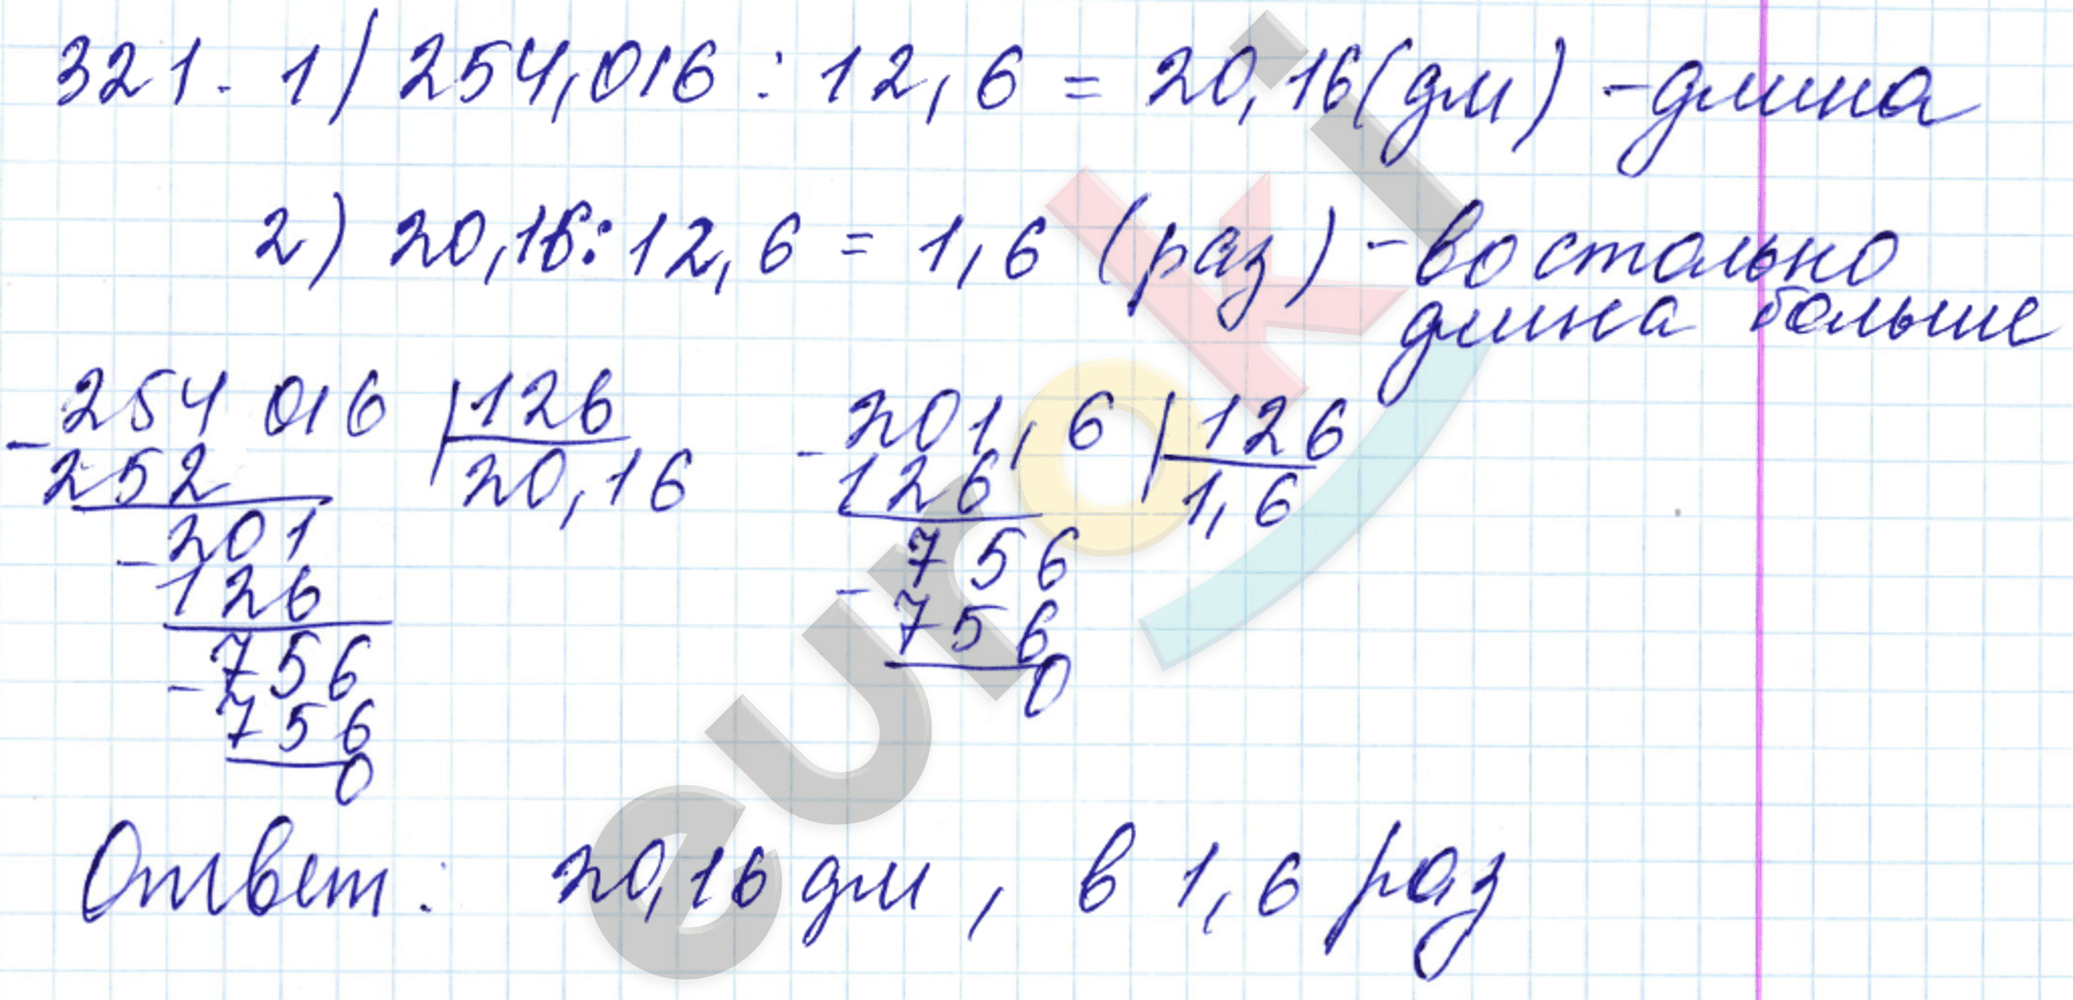 321. 1) 254,016 : 12,6 = 20,16 (дм) - длина
2) 20,16 : 12,6 = 1,6 (раз) - во столько
длина больше
254 016 | 126
- 252
20,16
- 201
126
- 756
756
0
- 201,6 | 126
126
1,6
- 756
756
0
Ответ: 20,16 дм, в 1,6 раз
euroki